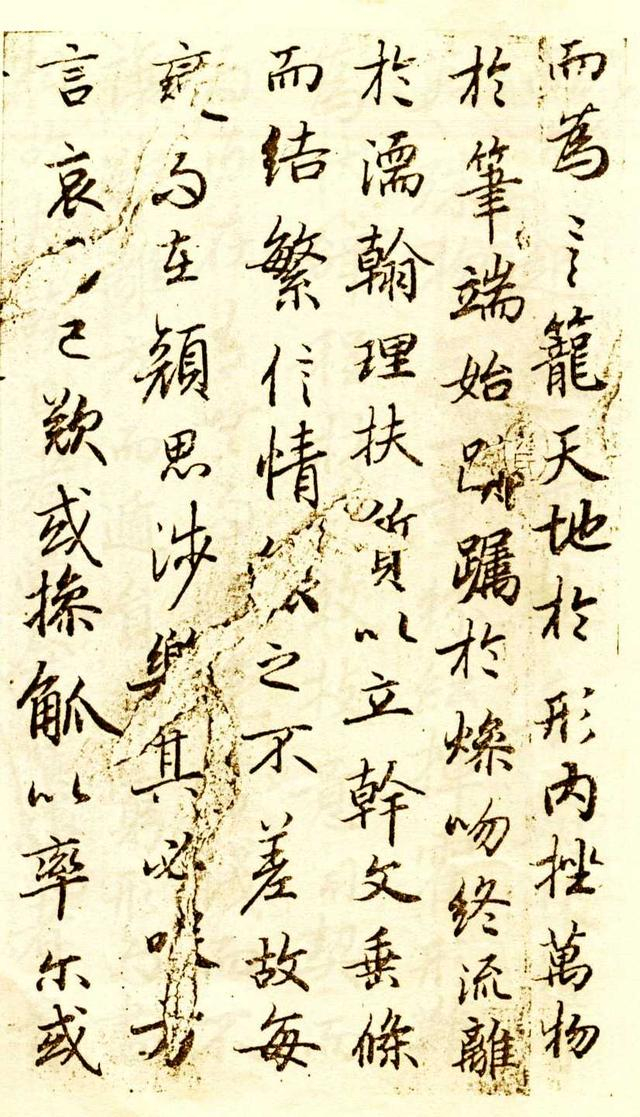 而為言籠天地於形內挫萬物
於筆端始躅於燥吻終流離
於濡翰理扶質以立幹文垂條
而結繁信情之不差故每
變而在顏思涉樂其必咲方
言哀已歎或操觚以率尓或